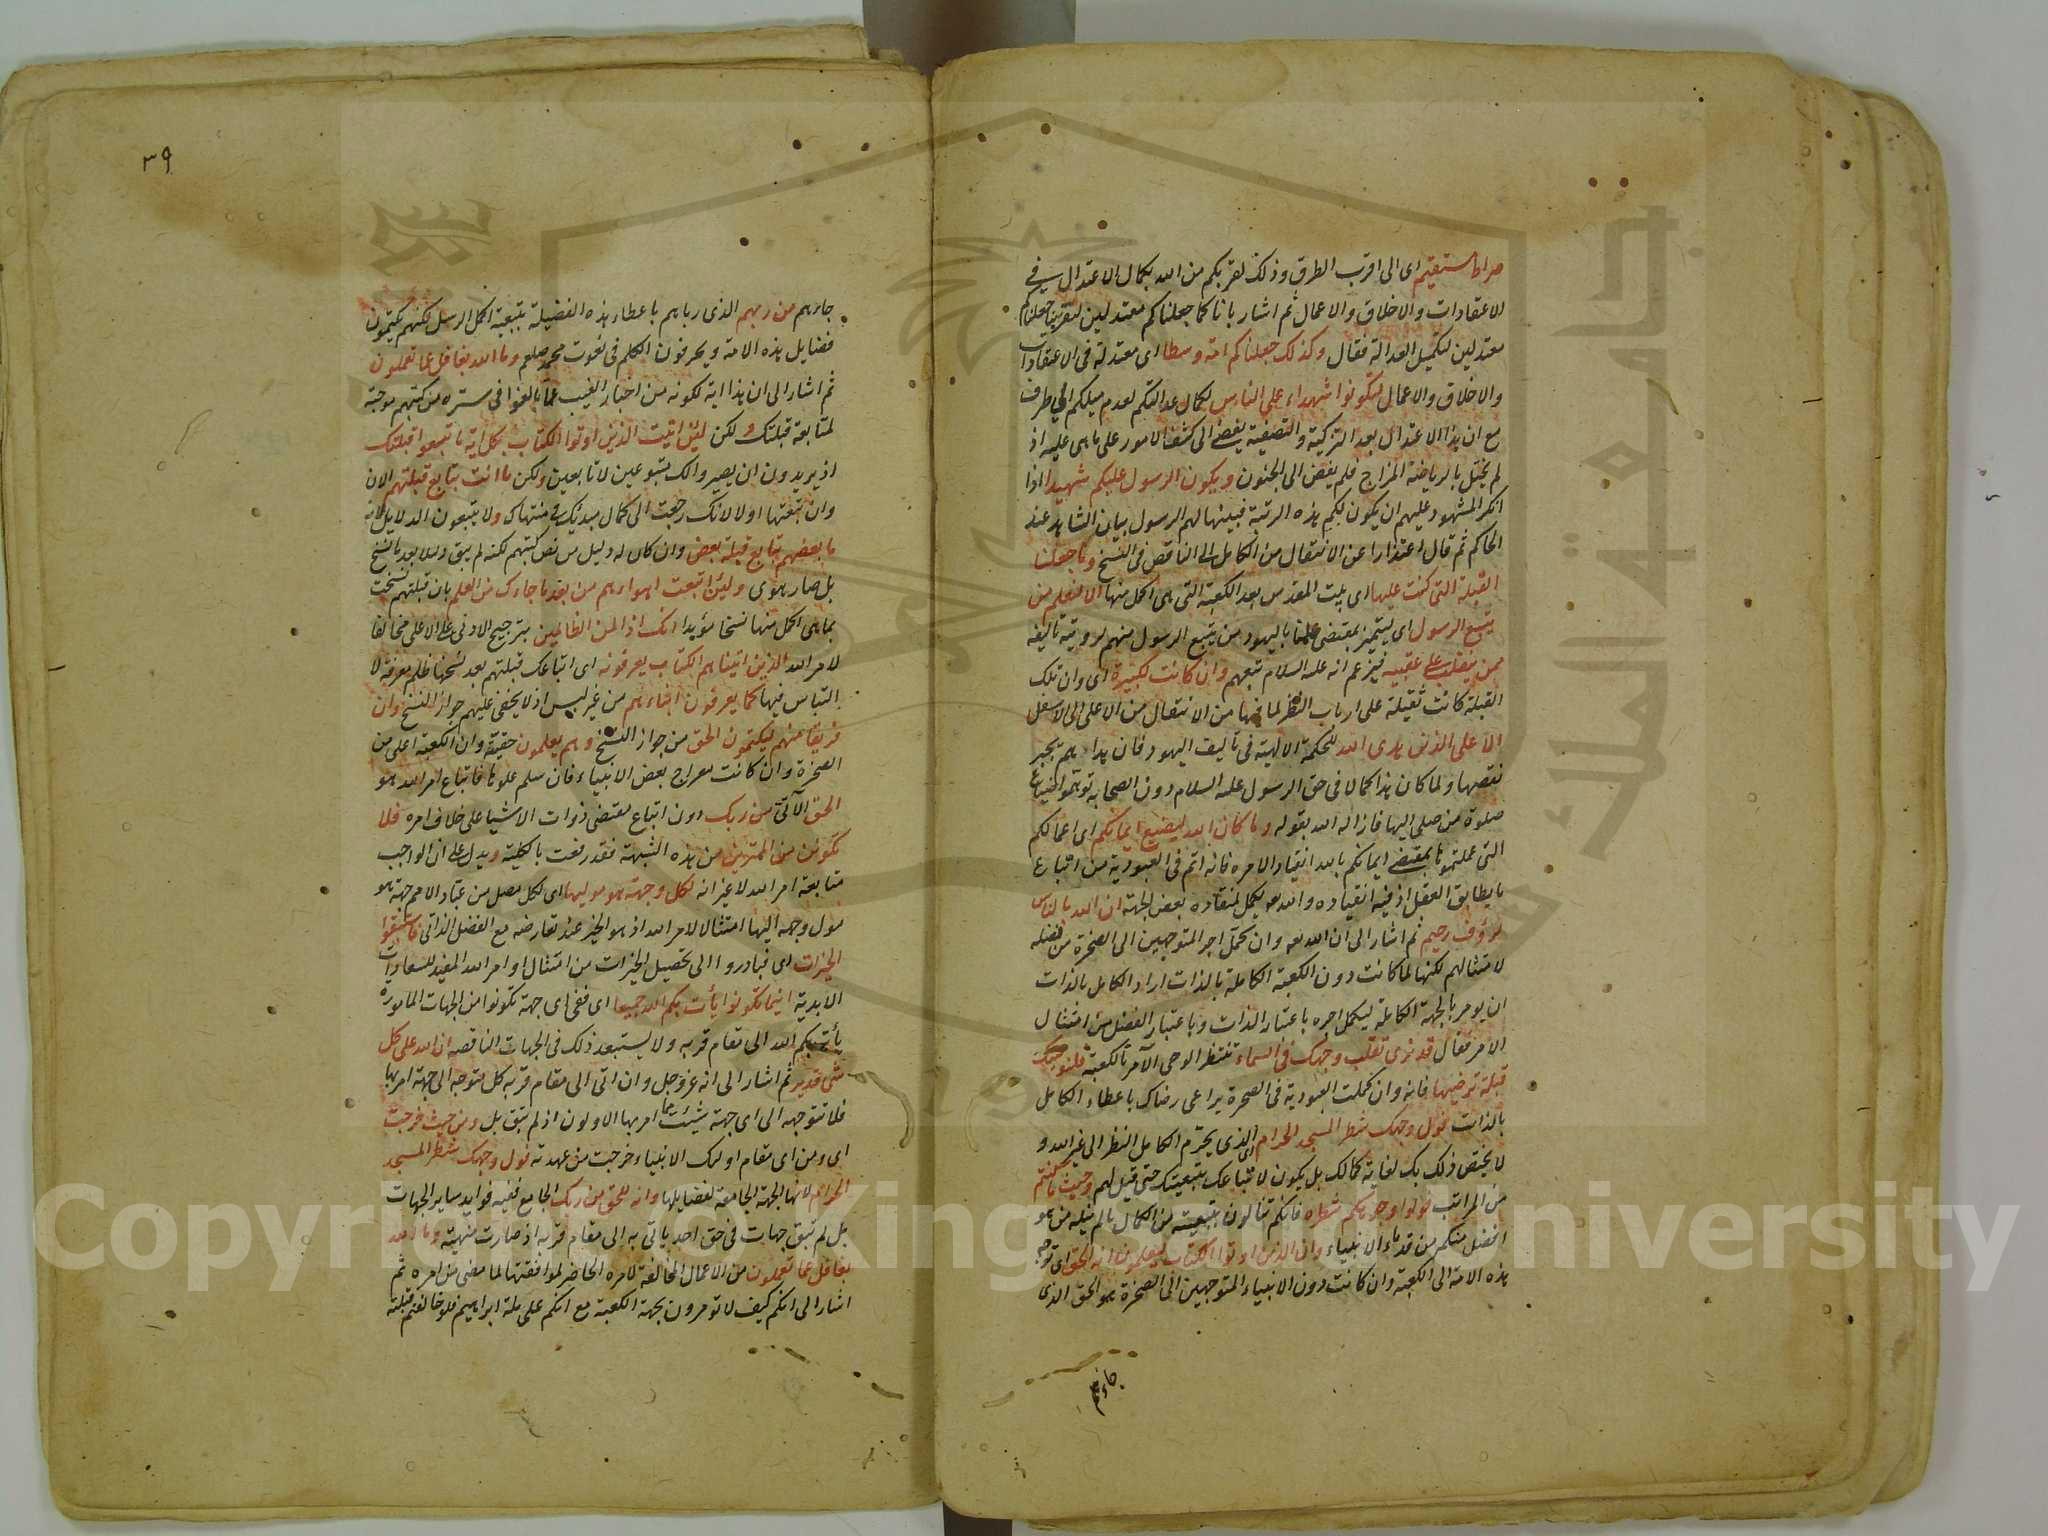 صراط مستقيم اى الى اقرب الطرق وذلك لقربكم من الله بكمال الاعتدال فى
الاعتقادات والاخلاق والاعمال ثم اشار بانا كما جعلناكم معتدلين جعلناكم
معتدلين لتكميل العدالة فقال وكذلك جعلناكم امة وسطا اى معتدلة فى الاعتقادات
والاخلاق والاعمال لتكونوا شهداء على الناس لكمال عدالتكم لعدم ميلكم الى طرف
مع ان هذا الاعتدال بعد التزكية والتصفية يفضى الى كشف الامور على ما هى عليه اذ
لم يختل بالرياضة المزاج فلم يفض الى الجنون ويكون الرسول عليكم شهيدا اذا
انكر المشهود عليهم ان يكون لكم هذه الرتبة فبينها لهم الرسول بيان الشاهد عند
الحاكم ثم قال اعتذارا عن الانتقال من الكامل الى الناقص فى النسخ وما جعلنا
القبلة التى كنت عليها اى بيت المقدس بعد الكعبة التى هى اكمل منها الا لنعلم من
يتبع الرسول اى ليتميز بمقتضى علمنا باليهود من يتبع الرسول منهم لرؤية تاليفه
ممن ينقلب على عقبيه فيزعم انه عليه السلام تبعهم وان كانت لكبيرة اى وان تلك
القبلة كانت ثقيلة على ارباب النظر لما فيها من الانتقال من الاعلى الى الاسفل
الا على الذين هدى الله للحكمة الالهية فى تاليف اليهود فان هدايتهم تجبر
نقصها ولما كان هذا كمالا فى حق الرسول عليه السلام دون الصحابة توهموا ضياع
صلوة من صلى اليها فازاله الله بقوله وما كان الله ليضيع ايمانكم اى اعمالكم
التى عملتموها بمقتضى ايمانكم بالله انقياد الامره فانه اتم فى العبودية من اتباع
ما يطابق العقل اذ فيه انقياده والله يكمل لمنقاده بعض الجهة ان الله بالناس
لرؤف رحيم ثم اشار الى ان الله تعه وان كمل اجر المتوجهين الى الصخرة من فضله
لامتثالهم لكنها لما كانت دون الكعبة الكاملة بالذات اراد الكامل بالذات
ان يومر بالجهة الكاملة ليكمل اجره باعتبار الذات وباعتبار الفضل من امتثال
الامر فقال قد نرى تقلب وجهك فى السماء تنتظر الوحى الآمر بالكعبة فلنولينك
قبلة ترضيها فانه وان كملت العبودية فى الصخرة يراعى رضاك باعطاء الكامل
بالذات فول وجهك شطر المسجد الحرام الذى يحترم الكامل النظر الى غير الله و
لا يختص ذلك بك لغاية كمالك بل يكون لاتباعك بتبعيتك حتى قيل لهم وحيث ما كنتم
من المراتب فولوا وجوهكم شطره فانكم تنالون بتبعيته من الكمال ما لم ينله من هو
افضل منكم من قدماء الانبياء وان الذين اوتوا الكتاب ليعلمون انه الحق اى توجه
هذه الامة الى الكعبة وان كانت دون الانبياء المتوجهين الى الصخرة هو الحق الذى
جاءهم
٣٩
جاءهم من ربهم الذى رباهم باعطاء هذه الفضيلة بتبعية اكمل الرسل لكنهم يكتمون
فضايل هذه الامة ويحرفون الكلم فى نعوت محمد صلعم وما الله بغافل عما تعملون
ثم اشار الى ان هذا اية لكونه من اخبار الغيب عما بالغوا فى ستره من كتبهم موجبة
لمتابعة قبلتك ولكن لئن اتيت الذين اوتوا الكتاب بكل اية ما تبعوا قبلتك
اذ يريدون ان يصيروا لك متبوعين لا تابعين ولكن ما انت بتابع قبلتهم الان
وان تبعتها اولا لانك رجعت الى كمال مبدئك فى منتهاك ولا يتبعون الدلايل لانه
ما بعضهم بتابع قبلة بعض وان كان له دليل من نص كتبهم لكنه لم يبق دليلا بعد ما نسخ
بل صار هوى ولئن اتبعت اهواءهم من بعد ما جاءك من العلم بان قبلتهم نسخت
بما هى اكمل منها نسخا مؤيدا انك اذا لمن الظالمين بترجيح الادنى على الاعلى مخالفا
لامر الله الذين اتيناهم الكتاب يعرفونه اى اتباعك قبلتهم بعد نسخها ظلم معرفة لا
التباس فيها كما يعرفون ابناءهم من غير لبس اذ لا يخفى عليهم جواز النسخ وان
فريقا منهم ليكتمون الحق من جواز النسخ وهم يعلمون حقيقة وان الكعبة اعلى من
الصخرة وان كانت معراج بعض الانبياء فان سلم علوها فاتباع امر الله هو
الحق الآتى من ربك دون اتباع مقتضى ذوات الاشيا على خلاف امره فلا
تكونن من الممترين من هذه الشبهة فقد رفعت بالكلية ويدل على ان الواجب
متابعة امر الله لا غير انه لكل وجهة هو موليها اى لكل مصل من عباد الامم جهة هو
مول وجهه اليها امتثالا لامر الله اذ هو الخير عند تعارضه مع الفضل الذاتى فاستبقوا
الخيرات اى فبادروا الى تحصيل الخيرات من امتثال اوامر الله المفيد للسعادات
الابدية اينما تكونوا يأت بكم الله جميعا اى ففى اى جهة تكونوا من الجهات المامورة
يأت بكم الله الى مقام قربه ولا يستبعد ذلك فى الجهات الناقصة ان الله على كل
شئ قدير ثم اشار الى انه عز وجل وان اتى الى مقام قربه كل متوجه الى جهة امر بها
فلا تتوجه الى اى جهة شئت مما امر بها الاولون اذ لم تبق بل ومن حيث خرجت
اى ومن اى مقام اولئك الانبياء خرجت من عهدته فول وجهك شطر المسجد
الحرام لانها الجهة الجامعة لفضايلها وانه للحق من ربك الجامع ففيه فوايد ساير الجهات
بل لم تبق جهات فى حق احد ياتى به الى مقام قربه اذ صارت منهية وما الله
بغافل عما تعملون من الاعمال المخالفة لامره الحاضر لموافقتها لما مضى من امره ثم
اشار الى انكم كيف لا تومرون بجهة الكعبة مع انكم على ملة ابراهيم فلو خالفتم قبلته
Copyright © King Saud University
جامعة الملك سعود
1957